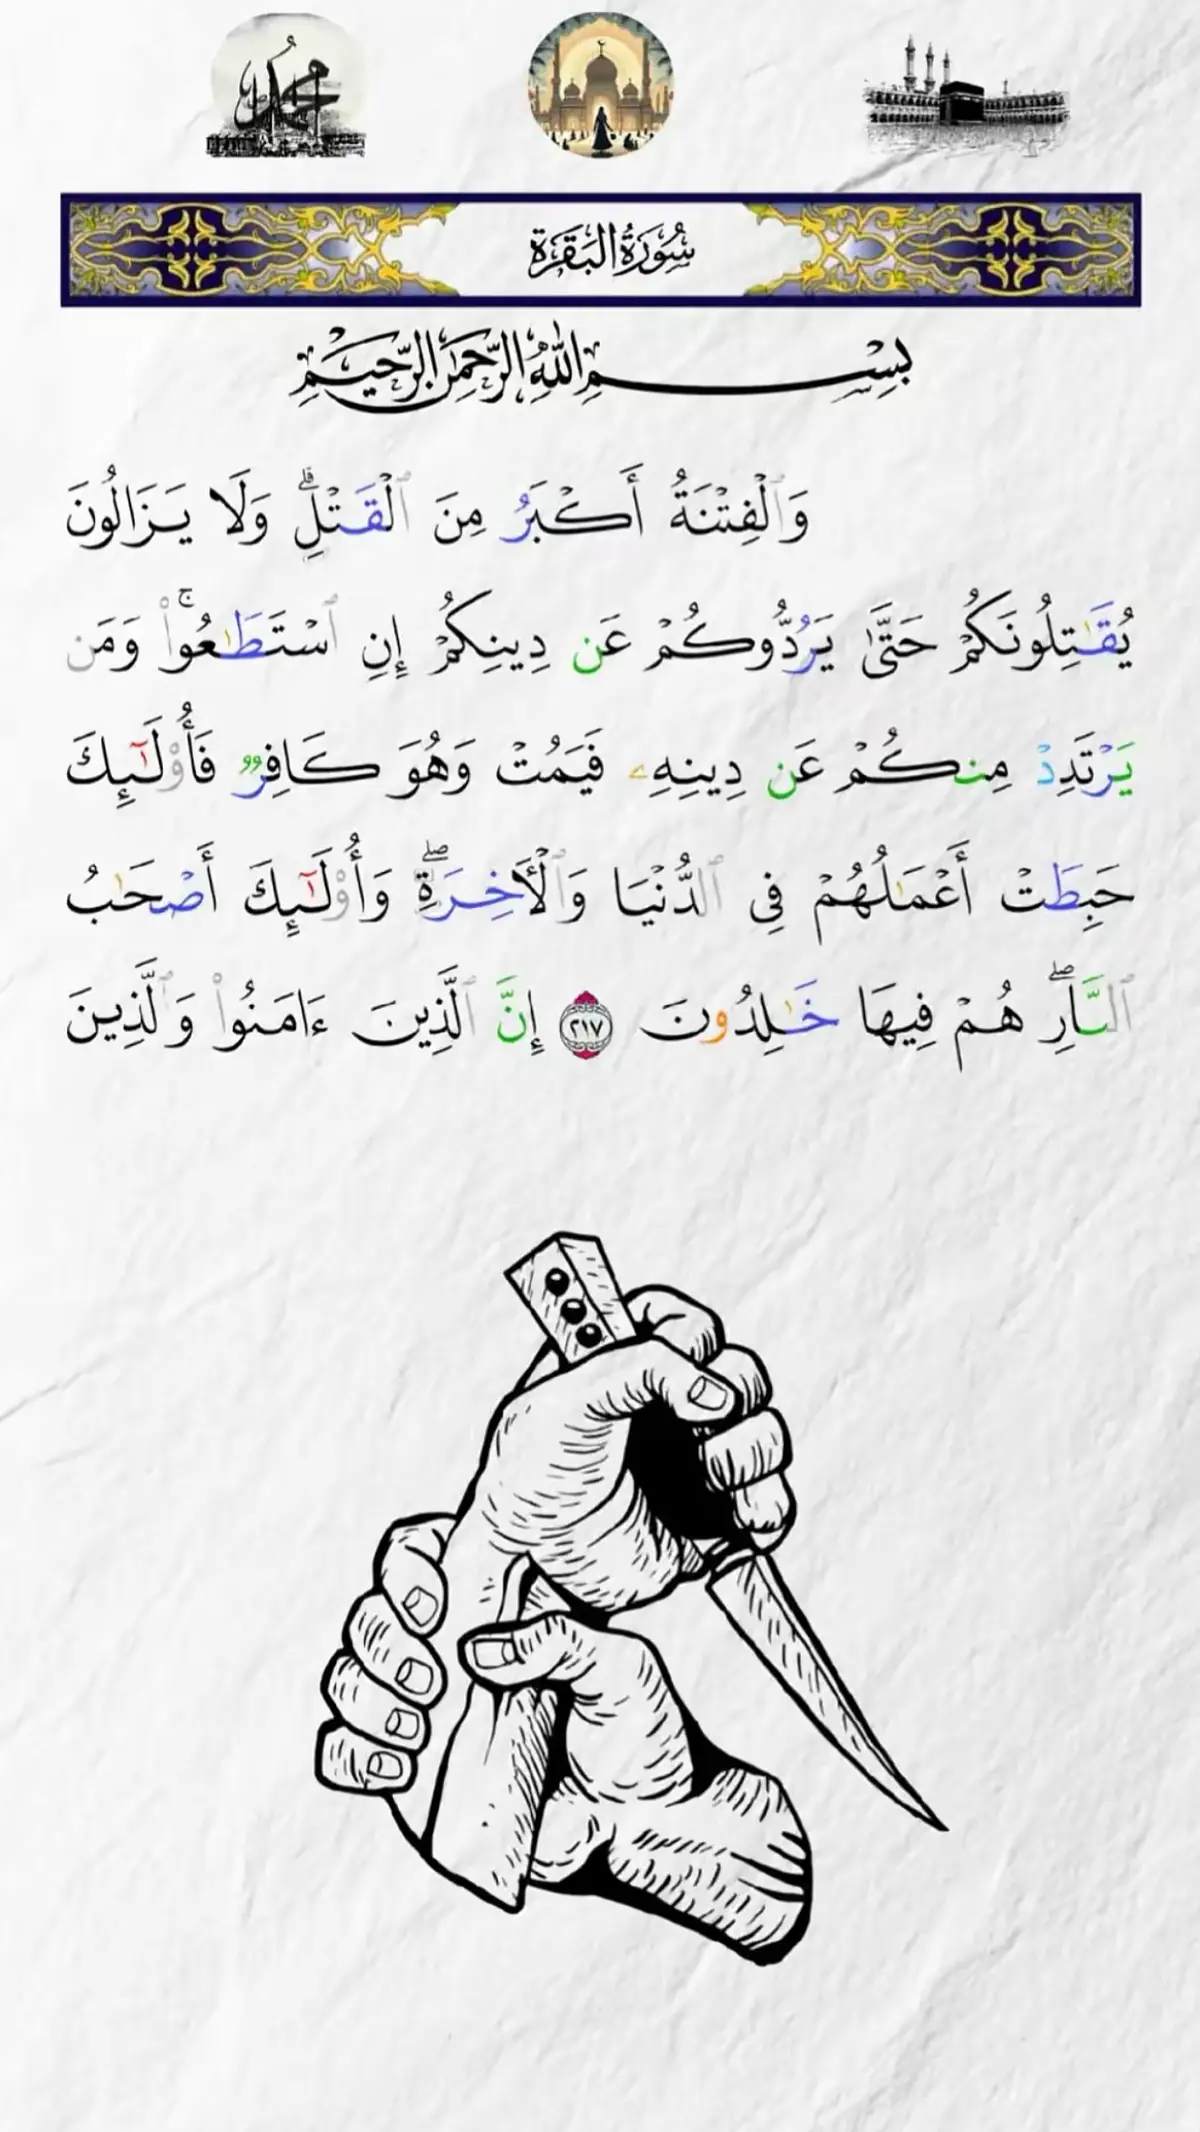 محمد
سُورَةُ البَقَرَةِ
بِسْمِ اللَّهِ الرَّحْمَٰنِ الرَّحِيمِ
وَٱلْفِتْنَةُ أَكْبَرُ مِنَ ٱلْقَتْلِۗ وَلَا يَزَالُونَ
يُقَـٰتِلُونَكُمْ حَتَّىٰ يَرُدُّوكُمْ عَن دِينِكُمْ إِنِ ٱسْتَطَـٰعُوا۟ۚ وَمَن
يَرْتَدِدْ مِنكُمْ عَن دِينِهِۦ فَيَمُتْ وَهُوَ كَافِرٌ فَأُو۟لَـٰٓئِكَ
حَبِطَتْ أَعْمَـٰلُهُمْ فِى ٱلدُّنْيَا وَٱلْـَٔاخِرَةِۖ وَأُو۟لَـٰٓئِكَ أَصْحَـٰبُ
ٱلنَّارِۖ هُمْ فِيهَا خَـٰلِدُونَ ٢١٧ إِنَّ ٱلَّذِينَ ءَامَنُوا۟ وَٱلَّذِينَ